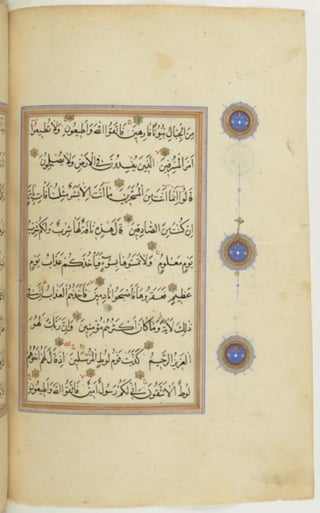 مِنَ الجِبَالِ بُيُوتًا فَارِهِينَ فَاتَّقُوا اللهَ وَأَطِيعُونِ وَلَا تُطِيعُوا
أَمْرَ الْمُسْرِفِينَ الَّذِينَ يُفْسِدُونَ فِي الْأَرْضِ وَلَا يُصْلِحُونَ
قَالُوا إِنَّمَا أَنْتَ مِنَ الْمُسَحَّرِينَ مَا أَنْتَ إِلَّا بَشَرٌ مِثْلُنَا فَأْتِ بِآيَةٍ
إِنْ كُنْتَ مِنَ الصَّادِقِينَ قَالَ هَذِهِ نَاقَةٌ لَهَا شِرْبٌ وَلَكُمْ شِرْبُ
يَوْمٍ مَعْلُومٍ وَلَا تَمَسُّوهَا بِسُوءٍ فَيَأْخُذَكُمْ عَذَابُ يَوْمٍ
عَظِيمٍ فَعَقَرُوهَا فَأَصْبَحُوا نَادِمِينَ فَأَخَذَهُمُ الْعَذَابُ إِنَّ فِي
ذَلِكَ لَآيَةً وَمَا كَانَ أَكْثَرُهُمْ مُؤْمِنِينَ وَإِنَّ رَبَّكَ لَهُوَ
الْعَزِيزُ الرَّحِيمُ كَذَّبَتْ قَوْمُ لُوطٍ الْمُرْسَلِينَ إِذْ قَالَ لَهُمْ أَخُوهُمْ
لُوطٌ أَلَا تَتَّقُونَ إِنِّي لَكُمْ رَسُولٌ أَمِينٌ فَاتَّقُوا اللهَ وَأَطِيعُونِ